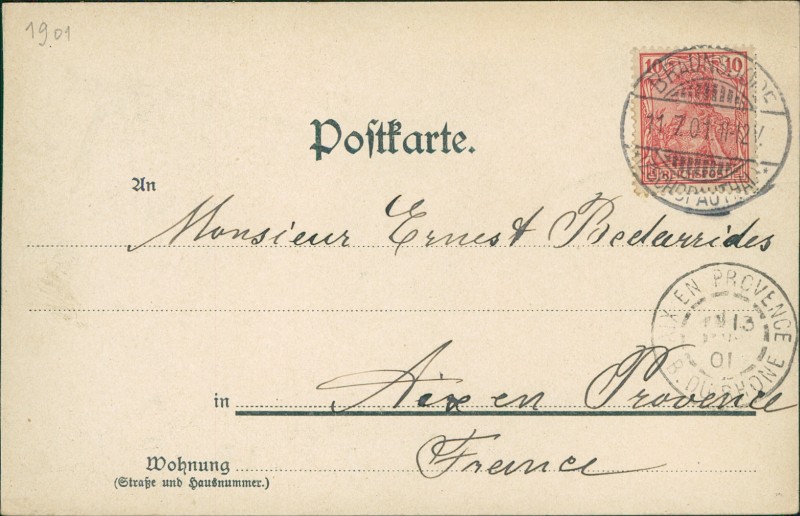 1901
10 10
REICHSPOST
BRAUNLAGE
11.7.01 11-12V
Postkarte.
An
Monsieur Ernest Bedarrides
AIX EN PROVENCE
13
01
B. DU RHONE
in Aix en Provence
Wohnung France
(Straße und Hausnummer.)